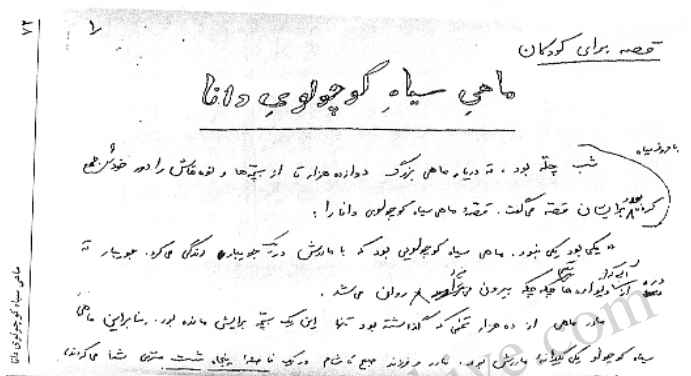 ۷۲
۱
قصه برای کودکان
ماهیِ سیاهِ کوچولویِ دانا
با حروف سیاه
شب چله بود. ته دریا، ماهی بزرگ دوازده هزار تا از بچه‌ها و نوه‌هاش را دور خودش جمع
کرده بود و برایشان قصه می‌گفت. قصهٔ ماهی سیاه کوچولوی دانا را:
«یکی بود یکی نبود. ماهی سیاه کوچولویی بود که با مادرش در یک جویبار زندگی می‌کرد. جویبار ته
دره از دیواره‌ها چکه چکه بیرون روان می‌شد.
مادر ماهی از ده هزار تخمی که گذاشته بود تنها این یک بچه برایش مانده بود. بنابراین ماهی
سیاه کوچولو یکی یکدانهٔ مادرش بود. مادر و فرزند صبح تا شام در یک تا پنجاه شصت متری شنا می‌کردند
ماهی سیاه کوچولوی دانا